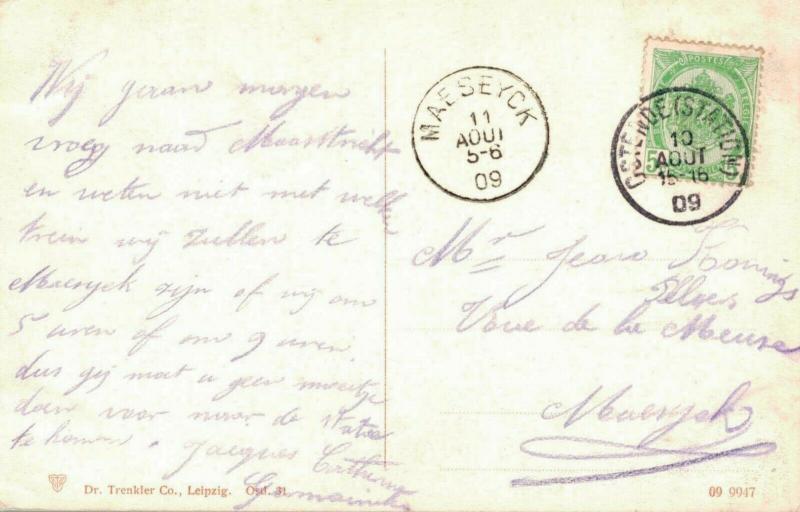 Wij gaan morgen
vroeg naar Maastricht
en weten niet met welke
trein wij zullen te
Maeseyck zijn of wij om
5 uren of om 9 uren
dus gij moet u geen moeitje
doen voor naar de statie
te komen. Jacques
MAESEYCK
11
AOUT
5-6
09
POSTES
5
OSTENDE (STATION)
10
AOUT
15-16
09
Mr Jean Konings
Voie de la Meuse
Maeseyck
Dr. Trenkler Co., Leipzig. Ostd. 31
09 9947